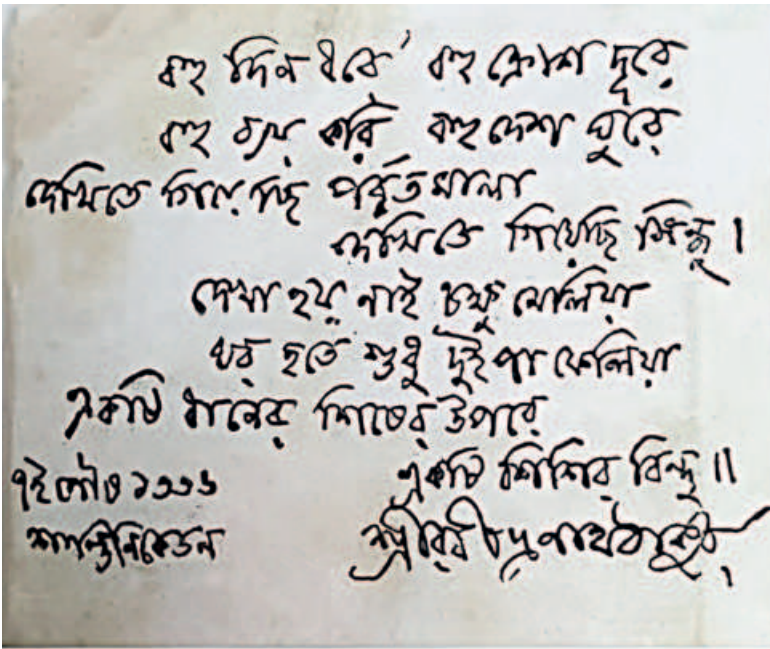 বহু দিন ধরে বহু ক্রোশ দূরে
বহু ব্যয় করি বহু দেশ ঘুরে
দেখিতে গিয়েছি পর্বতমালা
দেখিতে গিয়েছি সিন্ধু।
দেখা হয় নাই চক্ষু মেলিয়া
ঘর হতে শুধু দুই পা ফেলিয়া
একটি ধানের শিষের উপরে
একটি শিশির বিন্দু॥
৭ই পৌষ ১৩৩৬
শান্তিনিকেতন
শ্রীরবীন্দ্রনাথ ঠাকুর